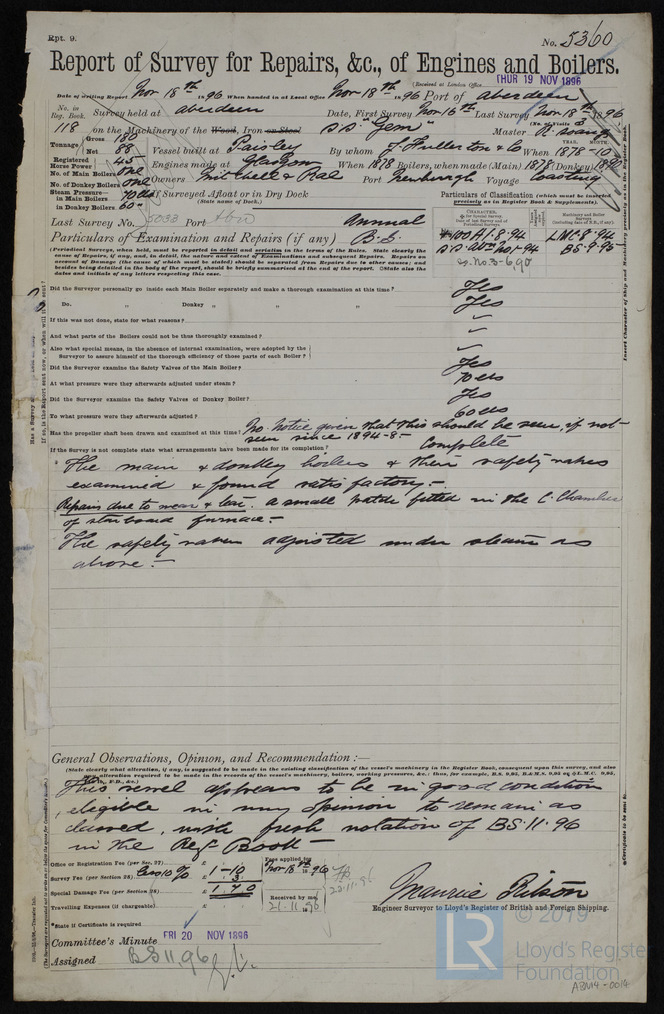 Rpt. 9.
No. 5360
Report of Survey for Repairs, &c., of Engines and Boilers.
(Received at London Office THUR 19 NOV 1896
Date of writing Report Nov 18th 1896 When handed in at Local Office Nov 18th 1896 Port of Aberdeen
No. in Reg. Book. Survey held at Aberdeen Date, First Survey Nov 16th Last Survey Nov 18th 1896
(No. of Visits 3
118 on the Machinery of the Wood, Iron or Steel S.S. "Gem" Master
Tonnage Gross 160 Net 88 Vessel built at Paisley By whom J. Fullerton & Co When 1878-10
Registered Horse Power 45 Engines made at Glasgow When 1878 Boilers, when made (Main) 1878 (Donkey)
No. of Main Boilers one
No. of Donkey Boilers one Owners Mitchell & Rae Port Newburgh Voyage Coasting
Steam Pressure— in Main Boilers 70 lbs If Surveyed Afloat or in Dry Dock
(State name of Dock.)
in Donkey Boilers 60 "
Particulars of Classification (which must be inserted precisely as in Register Book & Supplements).
Last Survey No. 5033 Port Abn Annual
Particulars of Examination and Repairs (if any) B.S.
L.M.C 8.94
BS. 9.95
(Periodical Surveys, when held, must be reported in detail and seriatim in the terms of the Rules. State clearly the
cause of Repairs, if any, and, in detail, the nature and extent of Examinations and subsequent Repairs. Repairs on
account of Damage (the cause of which must be stated) should be separated from Repairs due to other causes; and
besides being detailed in the body of the report, should be briefly summarised at the end of the report. State also the
dates and initials of any letters respecting this case.
Did the Surveyor personally go inside each Main Boiler separately and make a thorough examination at this time? Yes
Do. " Donkey " " " Yes
If this was not done, state for what reasons? "
And what parts of the Boilers could not be thus thoroughly examined? "
Also what special means, in the absence of internal examination, were adopted by the
Surveyor to assure himself of the thorough efficiency of those parts of each Boiler? "
Did the Surveyor examine the Safety Valves of the Main Boiler? Yes
At what pressure were they afterwards adjusted under steam? 70 lbs
Did the Surveyor examine the Safety Valves of Donkey Boiler? Yes
To what pressure were they afterwards adjusted? 60 lbs
Has the propeller shaft been drawn and examined at this time? No. Notice given that this should be seen, if not
seen since 1894-8-
If the Survey is not complete state what arrangements have been made for its completion? Complete
The main & donkey boilers & their safety valves
examined & found satisfactory.-
Repairs due to wear & tear. A small patch fitted in the C. Chamber
of starboard furnace.-
The safety valves adjusted under steam as
above.-
General Observations, Opinion, and Recommendation :—
(State clearly what alteration, if any, is suggested to be made in the existing classification of the vessel's machinery in the Register Book, consequent upon this survey, and also
any alteration required to be made in the records of the vessel's machinery, boilers, working pressures, &c.: thus, for example, B.S. 9,95, B.&M.S. 9,95 or L.M.C. 9,95,
This vessel appears to be in good condition
, eligible in my opinion to remain as
classed, with fresh notation of BS. 11.96
in the Reg Book-
Office or Registration Fee (per Sec. 27) £
Survey Fee (per Section 28) £ 1-10
Special Damage Fee (per Section 28) £
Travelling Expenses (if chargeable) £
Fees applied for Nov 18th 1896
Received by me, 21.11.96
22.11.96
Maurice Pitson
Engineer Surveyor to Lloyd's Register of British and Foreign Shipping.
*State if Certificate is required
Committee's Minute FRI 20 NOV 1896
Assigned BS 11.96
© 2019
LR
Lloyd's Register
Foundation
ABN14-0014